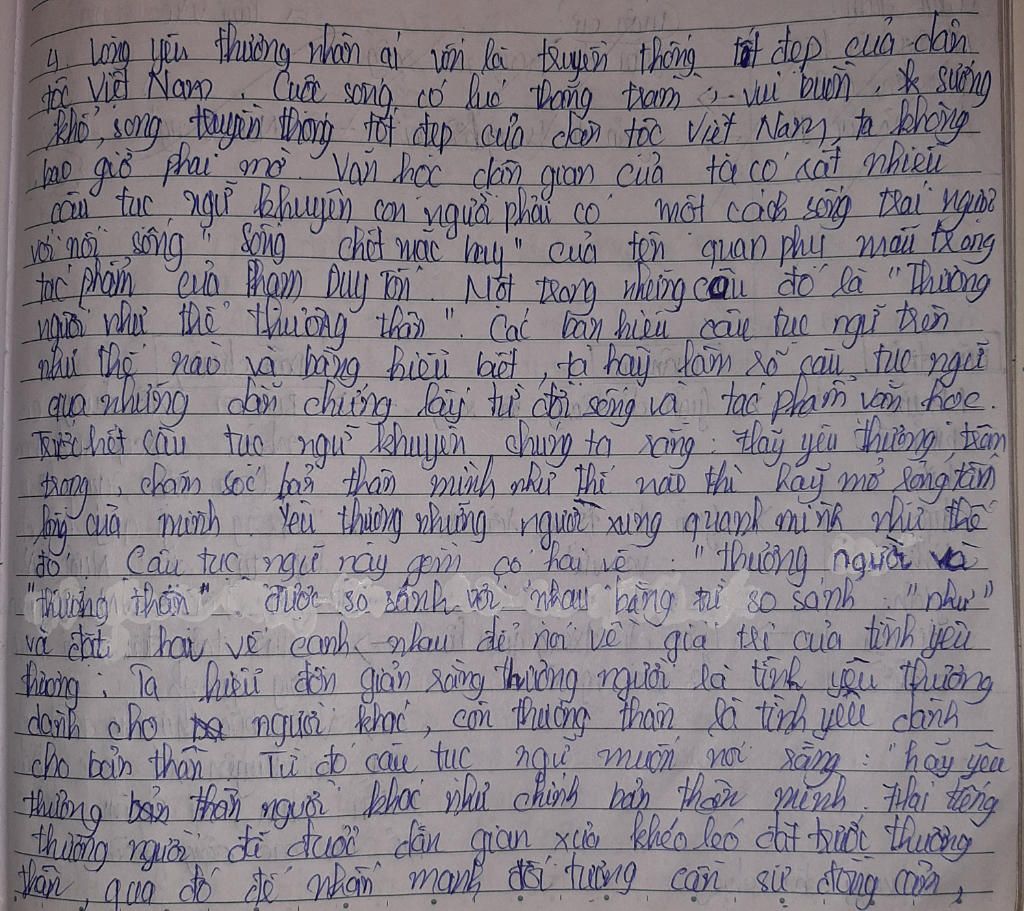 4. Lòng yêu thương nhân ái vốn là truyền thống tốt đẹp của dân
tộc Việt Nam. Cuộc sống có lúc thăng trầm, vui buồn, sướng
khổ, song truyền thống tốt đẹp của dân tộc Việt Nam, ta không
bao giờ phai mờ. Văn học dân gian của ta có rất nhiều
câu tục ngữ khuyên con người phải có một cách sống trái ngược
với lối sống "sống chết mặc bay" của tên quan phụ mẫu trong
tác phẩm của Phạm Duy Tốn. Một trong những câu đó là "Thương
người như thể thương thân". Các bạn hiểu câu tục ngữ trên
như thế nào và bằng hiểu biết, ta hãy làm rõ câu tục ngữ
qua những dẫn chứng lấy từ đời sống và tác phẩm văn học.
Trước hết câu tục ngữ khuyên chúng ta rằng: Hãy yêu thương, trân
trọng, chăm sóc bản thân mình như thế nào thì hãy mở rộng tấm
lòng của mình. Yêu thương những người xung quanh mình như thế
đó. Câu tục ngữ này gồm có hai vế: "thương người và
"thương thân". được so sánh với nhau bằng từ so sánh "như"
và đặt hai vế cạnh nhau để nói về giá trị của tình yêu
thương: Ta hiểu đơn giản rằng thương người là tình yêu thương
dành cho người khác, còn thương thân là tình yêu dành
cho bản thân. Từ đó câu tục ngữ muốn nói rằng: "hãy yêu
thương bản thân người khác như chính bản thân mình. Hai tiếng
thương người đã được dân gian xưa khéo léo đặt trước thương
thân, qua đó để nhấn mạnh đối tượng cần sự đồng cảm,